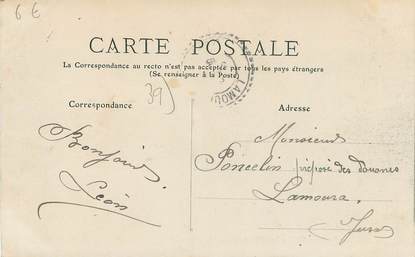 6 €
CARTE POSTALE
La Correspondance au recto n'est pas acceptée par tous les pays étrangers
(Se renseigner à la Poste)
LAMOU
Correspondance
39)
Adresse
Bonjour
Léon
Monsieur
Poncelin préposé des douanes
Lamoura
Jura